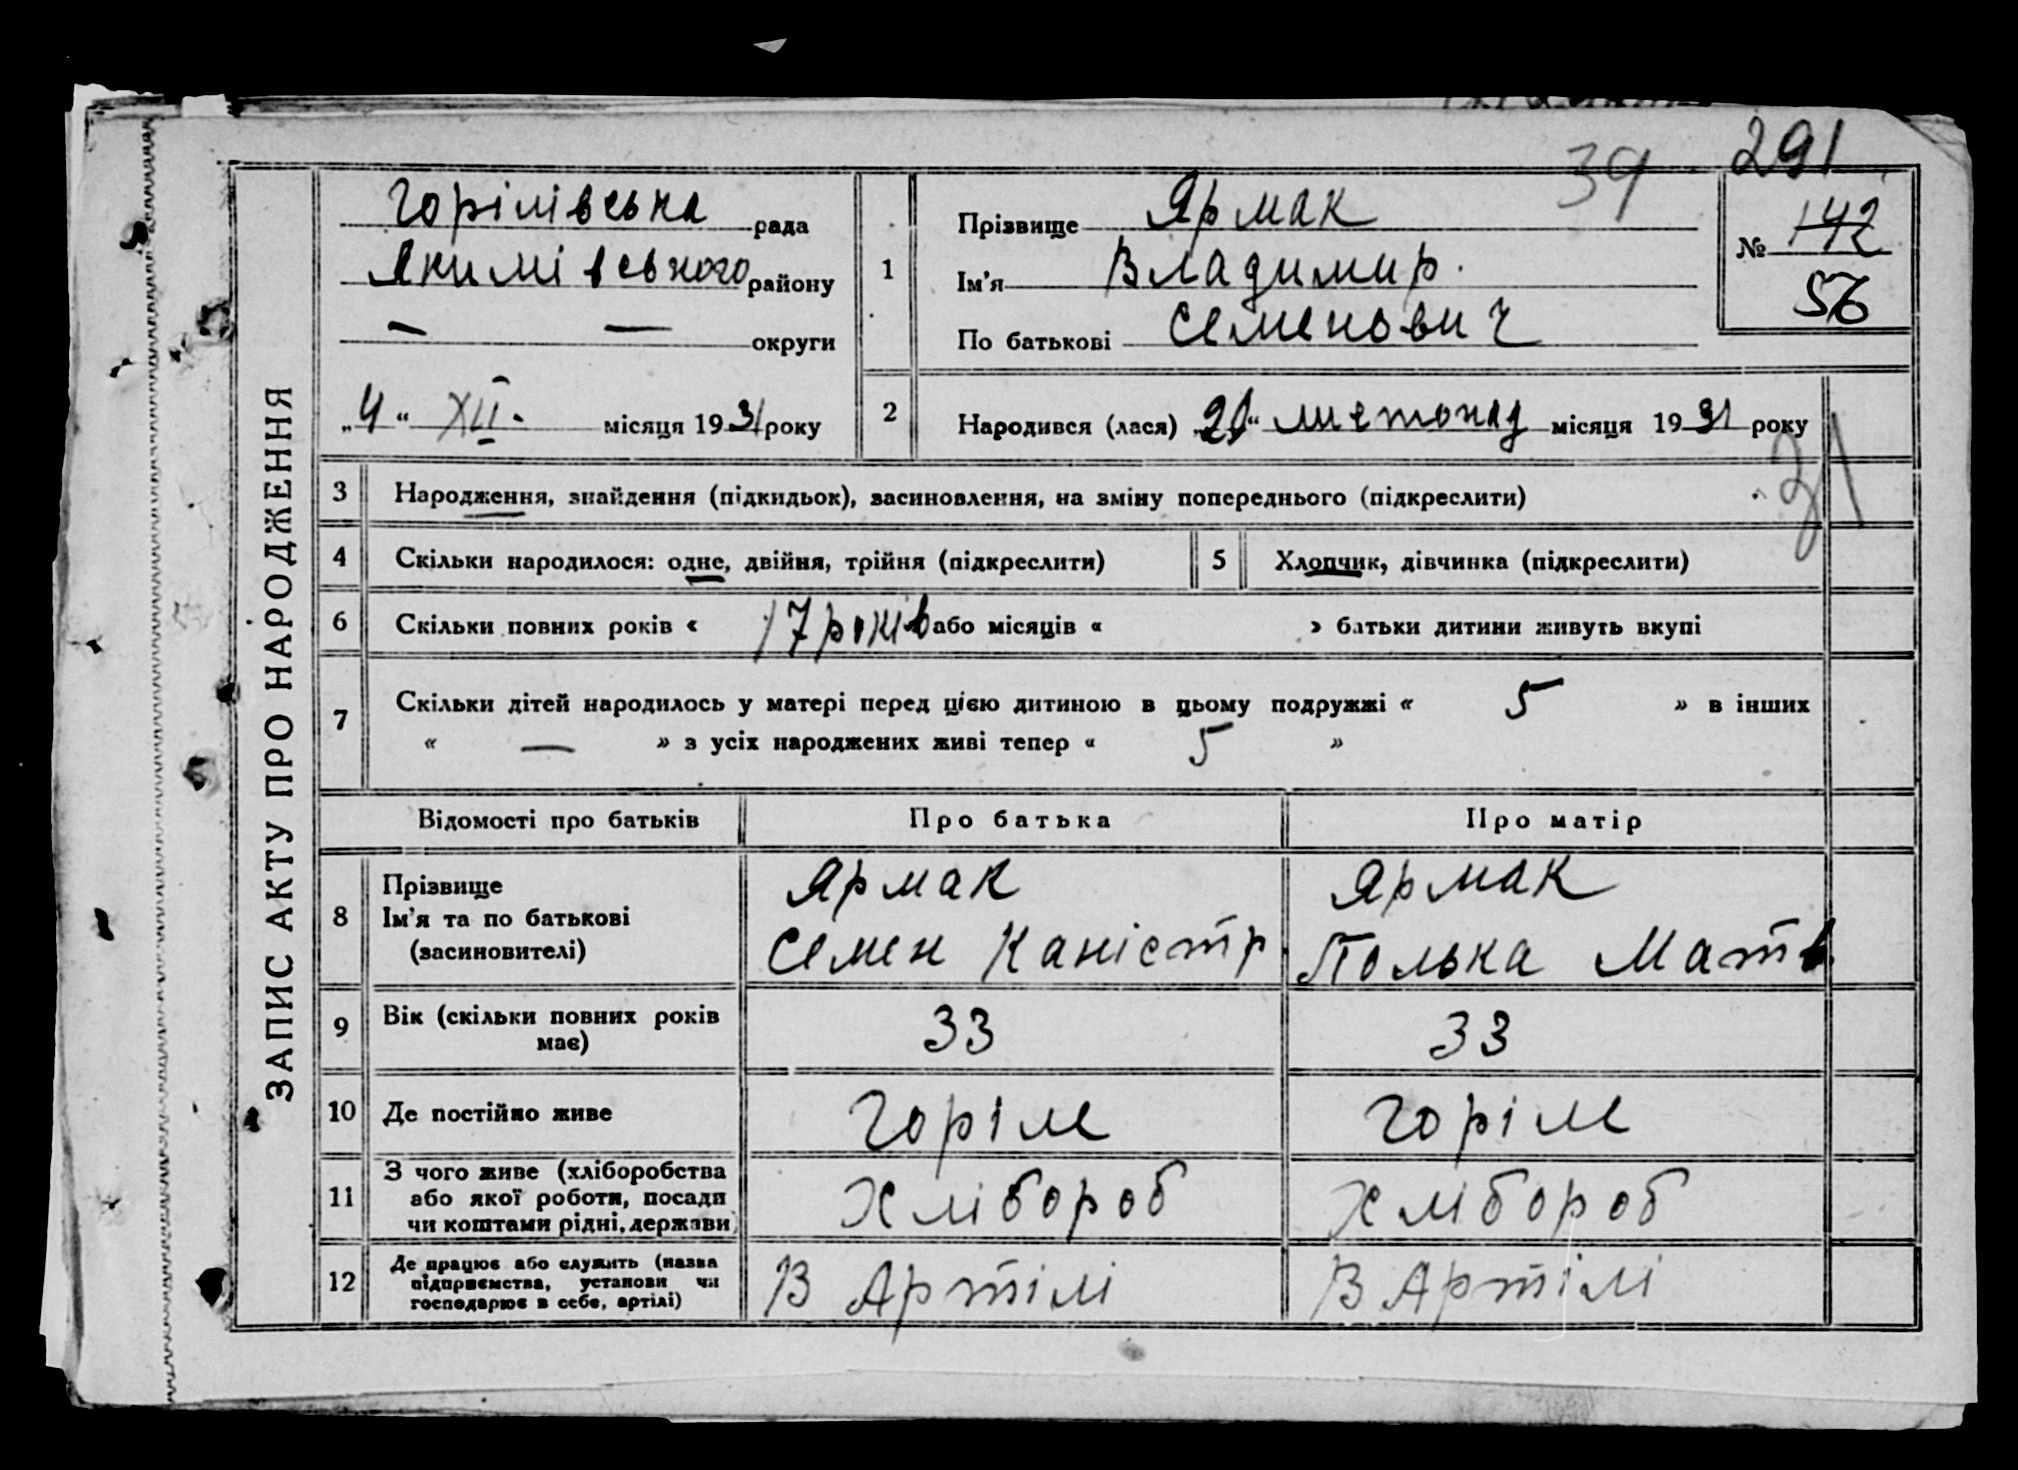 39 291
ЗАПИС АКТУ ПРО НАРОДЖЕННЯ
Горілівська рада
Якимівського району
— — округи
„4“ XII місяця 1931 року
1
Прізвище Ярмак
Ім'я Владимир
По батькові Семенович
№ 142
56
2 Народився (лася) „21“ листопад місяця 1931 року
31
3 Народження, знайдення (підкидьок), засиновлення, на зміну попереднього (підкреслити)
4 Скільки народилося: одне, двійня, трійня (підкреслити) 5 Хлопчик, дівчинка (підкреслити)
6 Скільки повних років « 17 років або місяців « » батьки дитини живуть вкупі
7 Скільки дітей народилось у матері перед цією дитиною в цьому подружжі « 5 » в інших
« — » з усіх народжених живі тепер « 5 »
Відомості про батьків Про батька Про матір
8 Прізвище
Ім'я та по батькові
(засиновителі)
Ярмак
Семен Каністр.
Ярмак
Полька Матв.
9 Вік (скільки повних років
має) 33 33
10 Де постійно живе Горіле Горіле
11 З чого живе (хліборобства
або якої роботи, посади
чи коштами рідні, держави)
Хлібороб Хлібороб
12 Де працює або служить (назва
підприємства, установи чи
господарює в себе, артілі)
В Артілі В Артілі